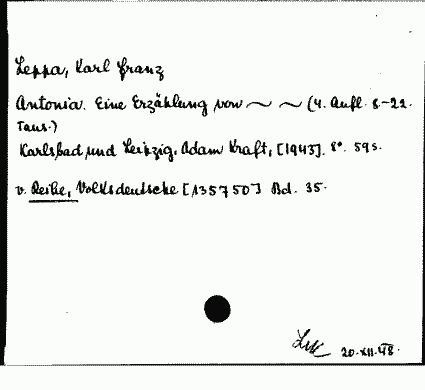 Leppa, Karl Franz
Antonia. Eine Erzählung von ~ ~ (4. Aufl. 8-22.
Taus.)
Karlsbad und Leipzig, Adam Kraft, [1943]. 8°. 59 s.
v. Reihe, Volksdeutsche [135750] Bd. 35.
20.XII.48.